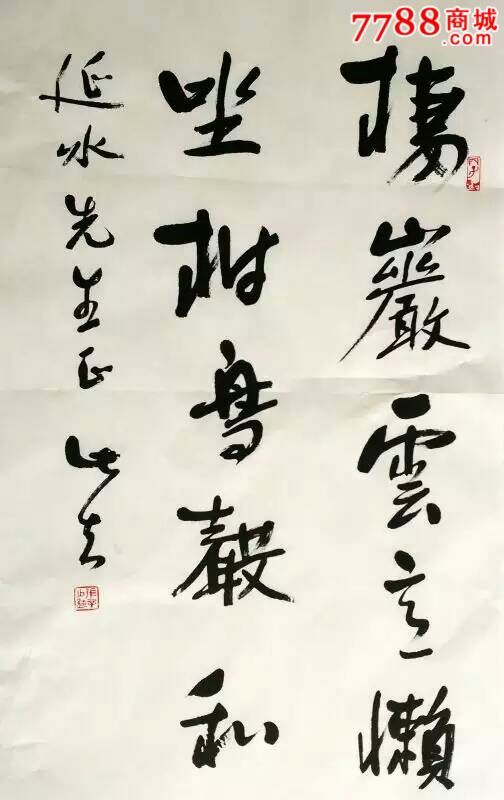 7788商城
.com
棲巖雲意懶
坐樹鳥聲和
延水先生正